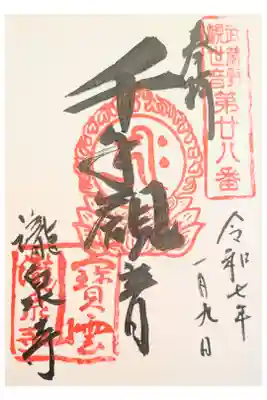 奉拝
武蔵野
観世音第廿八番
千手観音
令和七年
一月九日
寶雲
瀧泉寺